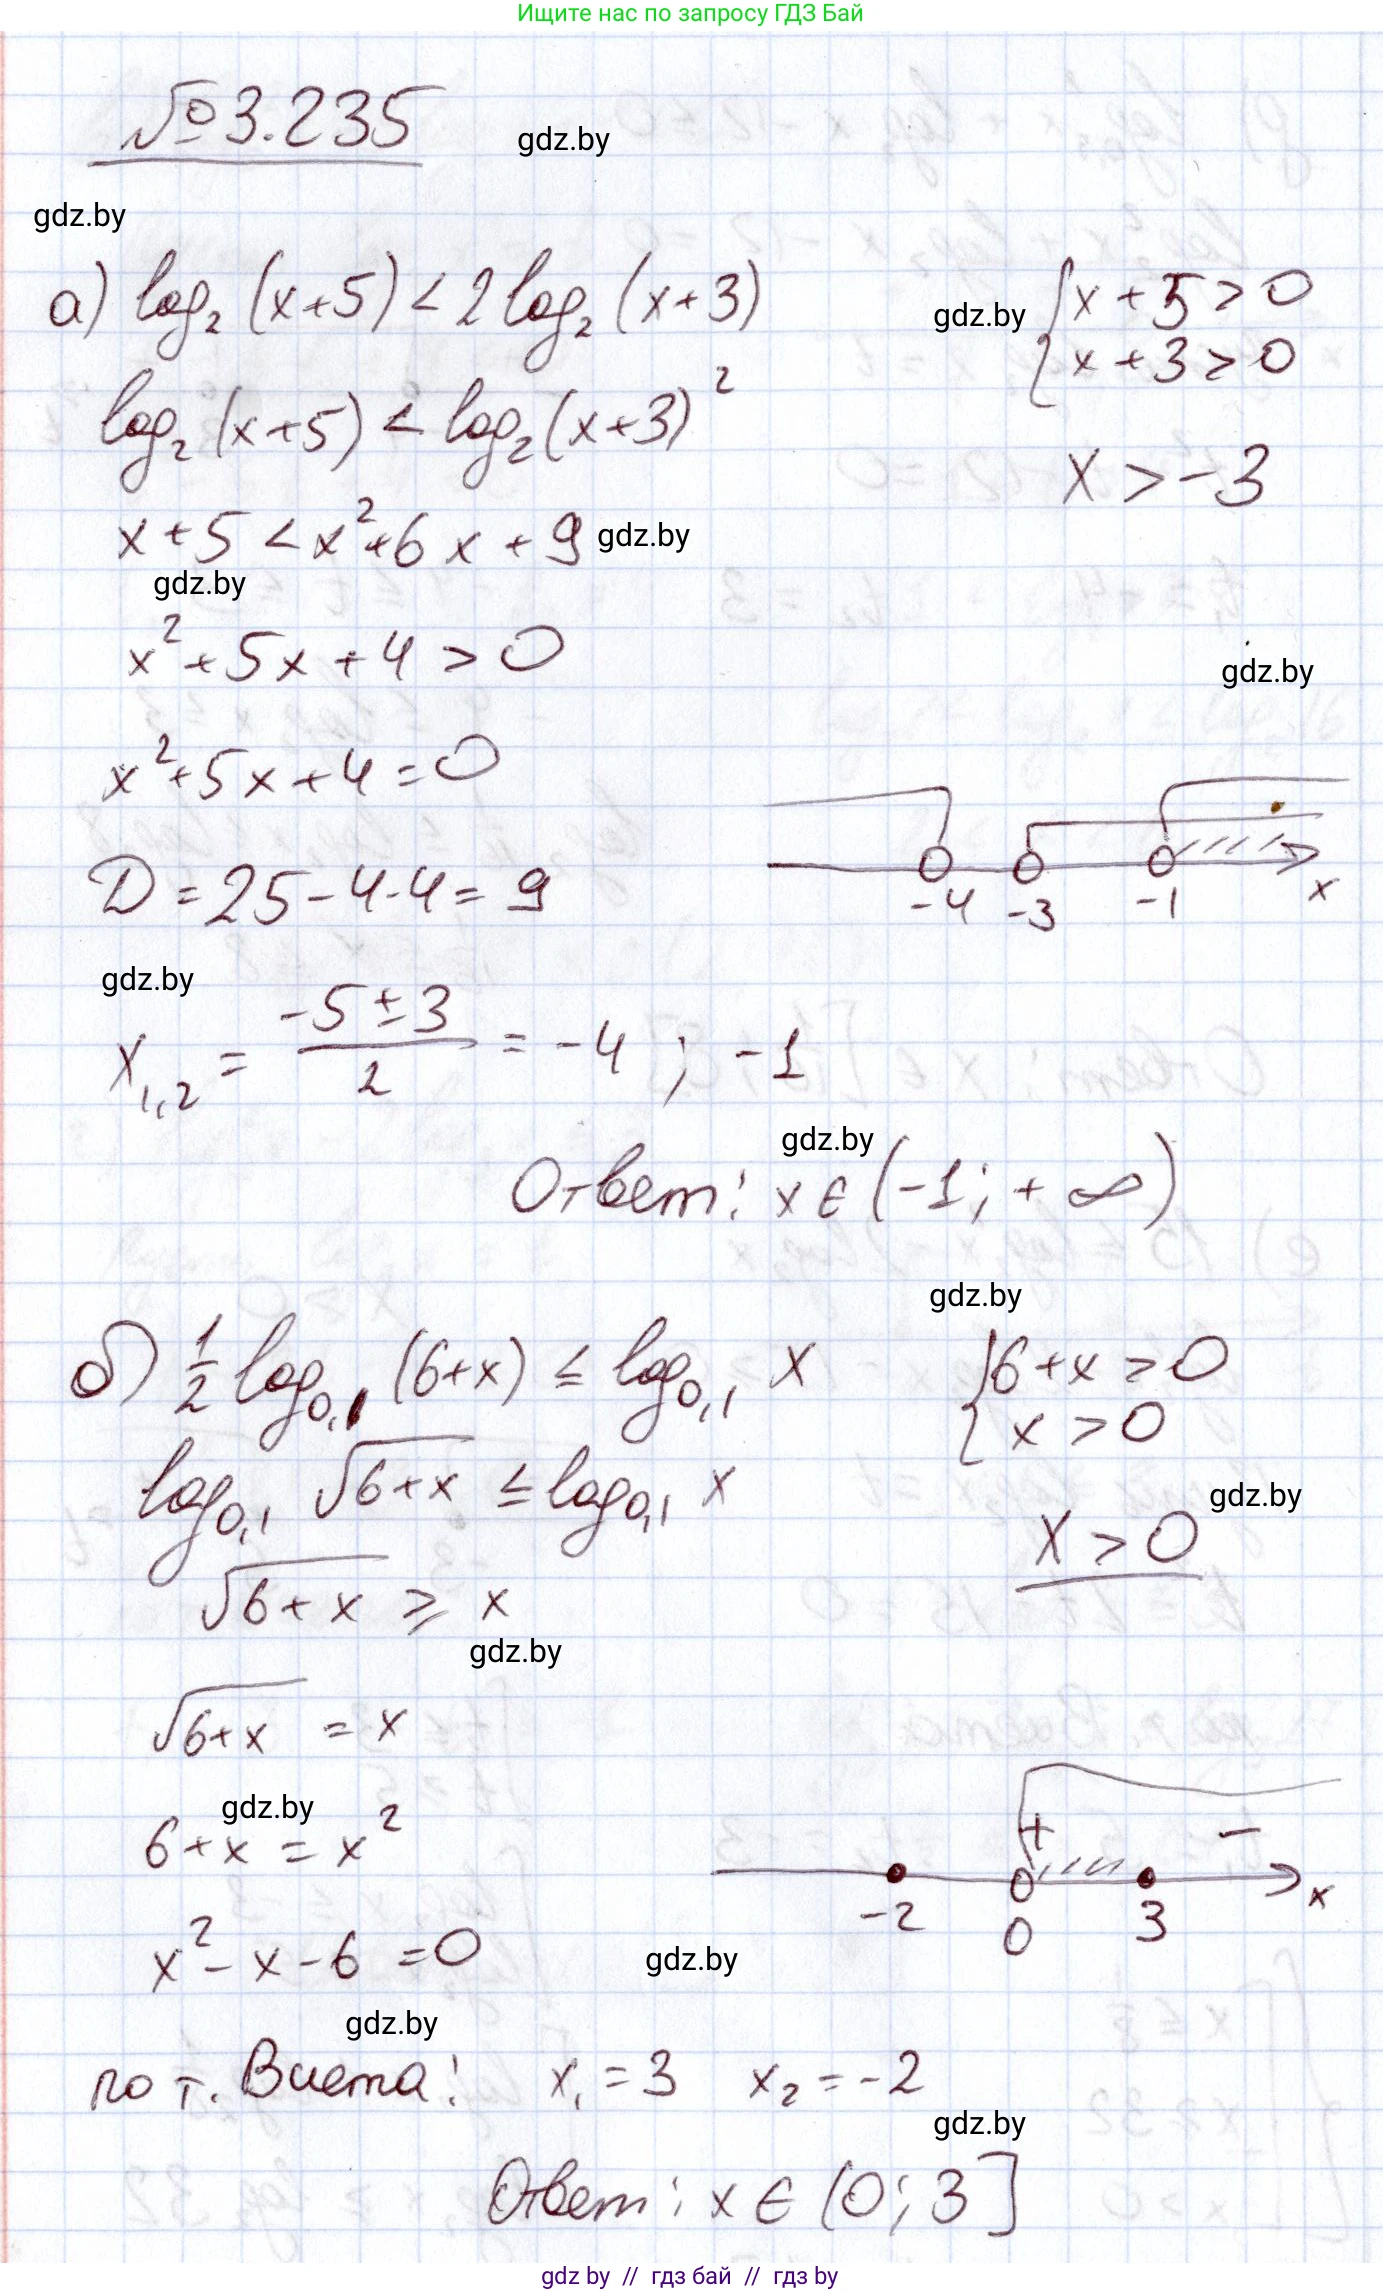 Ищите нас по запросу ГДЗ Бай
№3.235
gdz.by
gdz.by
а) log₂(x+5) < 2log₂(x+3)
gdz.by
{x+5>0
{x+3>0
log₂(x+5) < log₂(x+3)²
x > -3
x+5 < x²+6x+9
gdz.by
gdz.by
x²+5x+4 > 0
gdz.by
x²+5x+4 = 0
D = 25-4·4 = 9
-4 -3 -1 x
gdz.by
x₁,₂ = (-5±3)/2 = -4; -1
gdz.by
Ответ: x∈(-1; +∞)
gdz.by
б) 1/2 log₀,₁(6+x) ≤ log₀,₁ x
{6+x>0
{x>0
log₀,₁ √(6+x) ≤ log₀,₁ x
gdz.by
x > 0
√(6+x) ≥ x
gdz.by
√(6+x) = x
gdz.by
6+x = x²
+ -
-2 0 3 x
x²-x-6 = 0
gdz.by
gdz.by
по т. Виета: x₁ = 3 x₂ = -2
gdz.by
Ответ: x∈(0; 3]
gdz by // гдз бай // гдз by